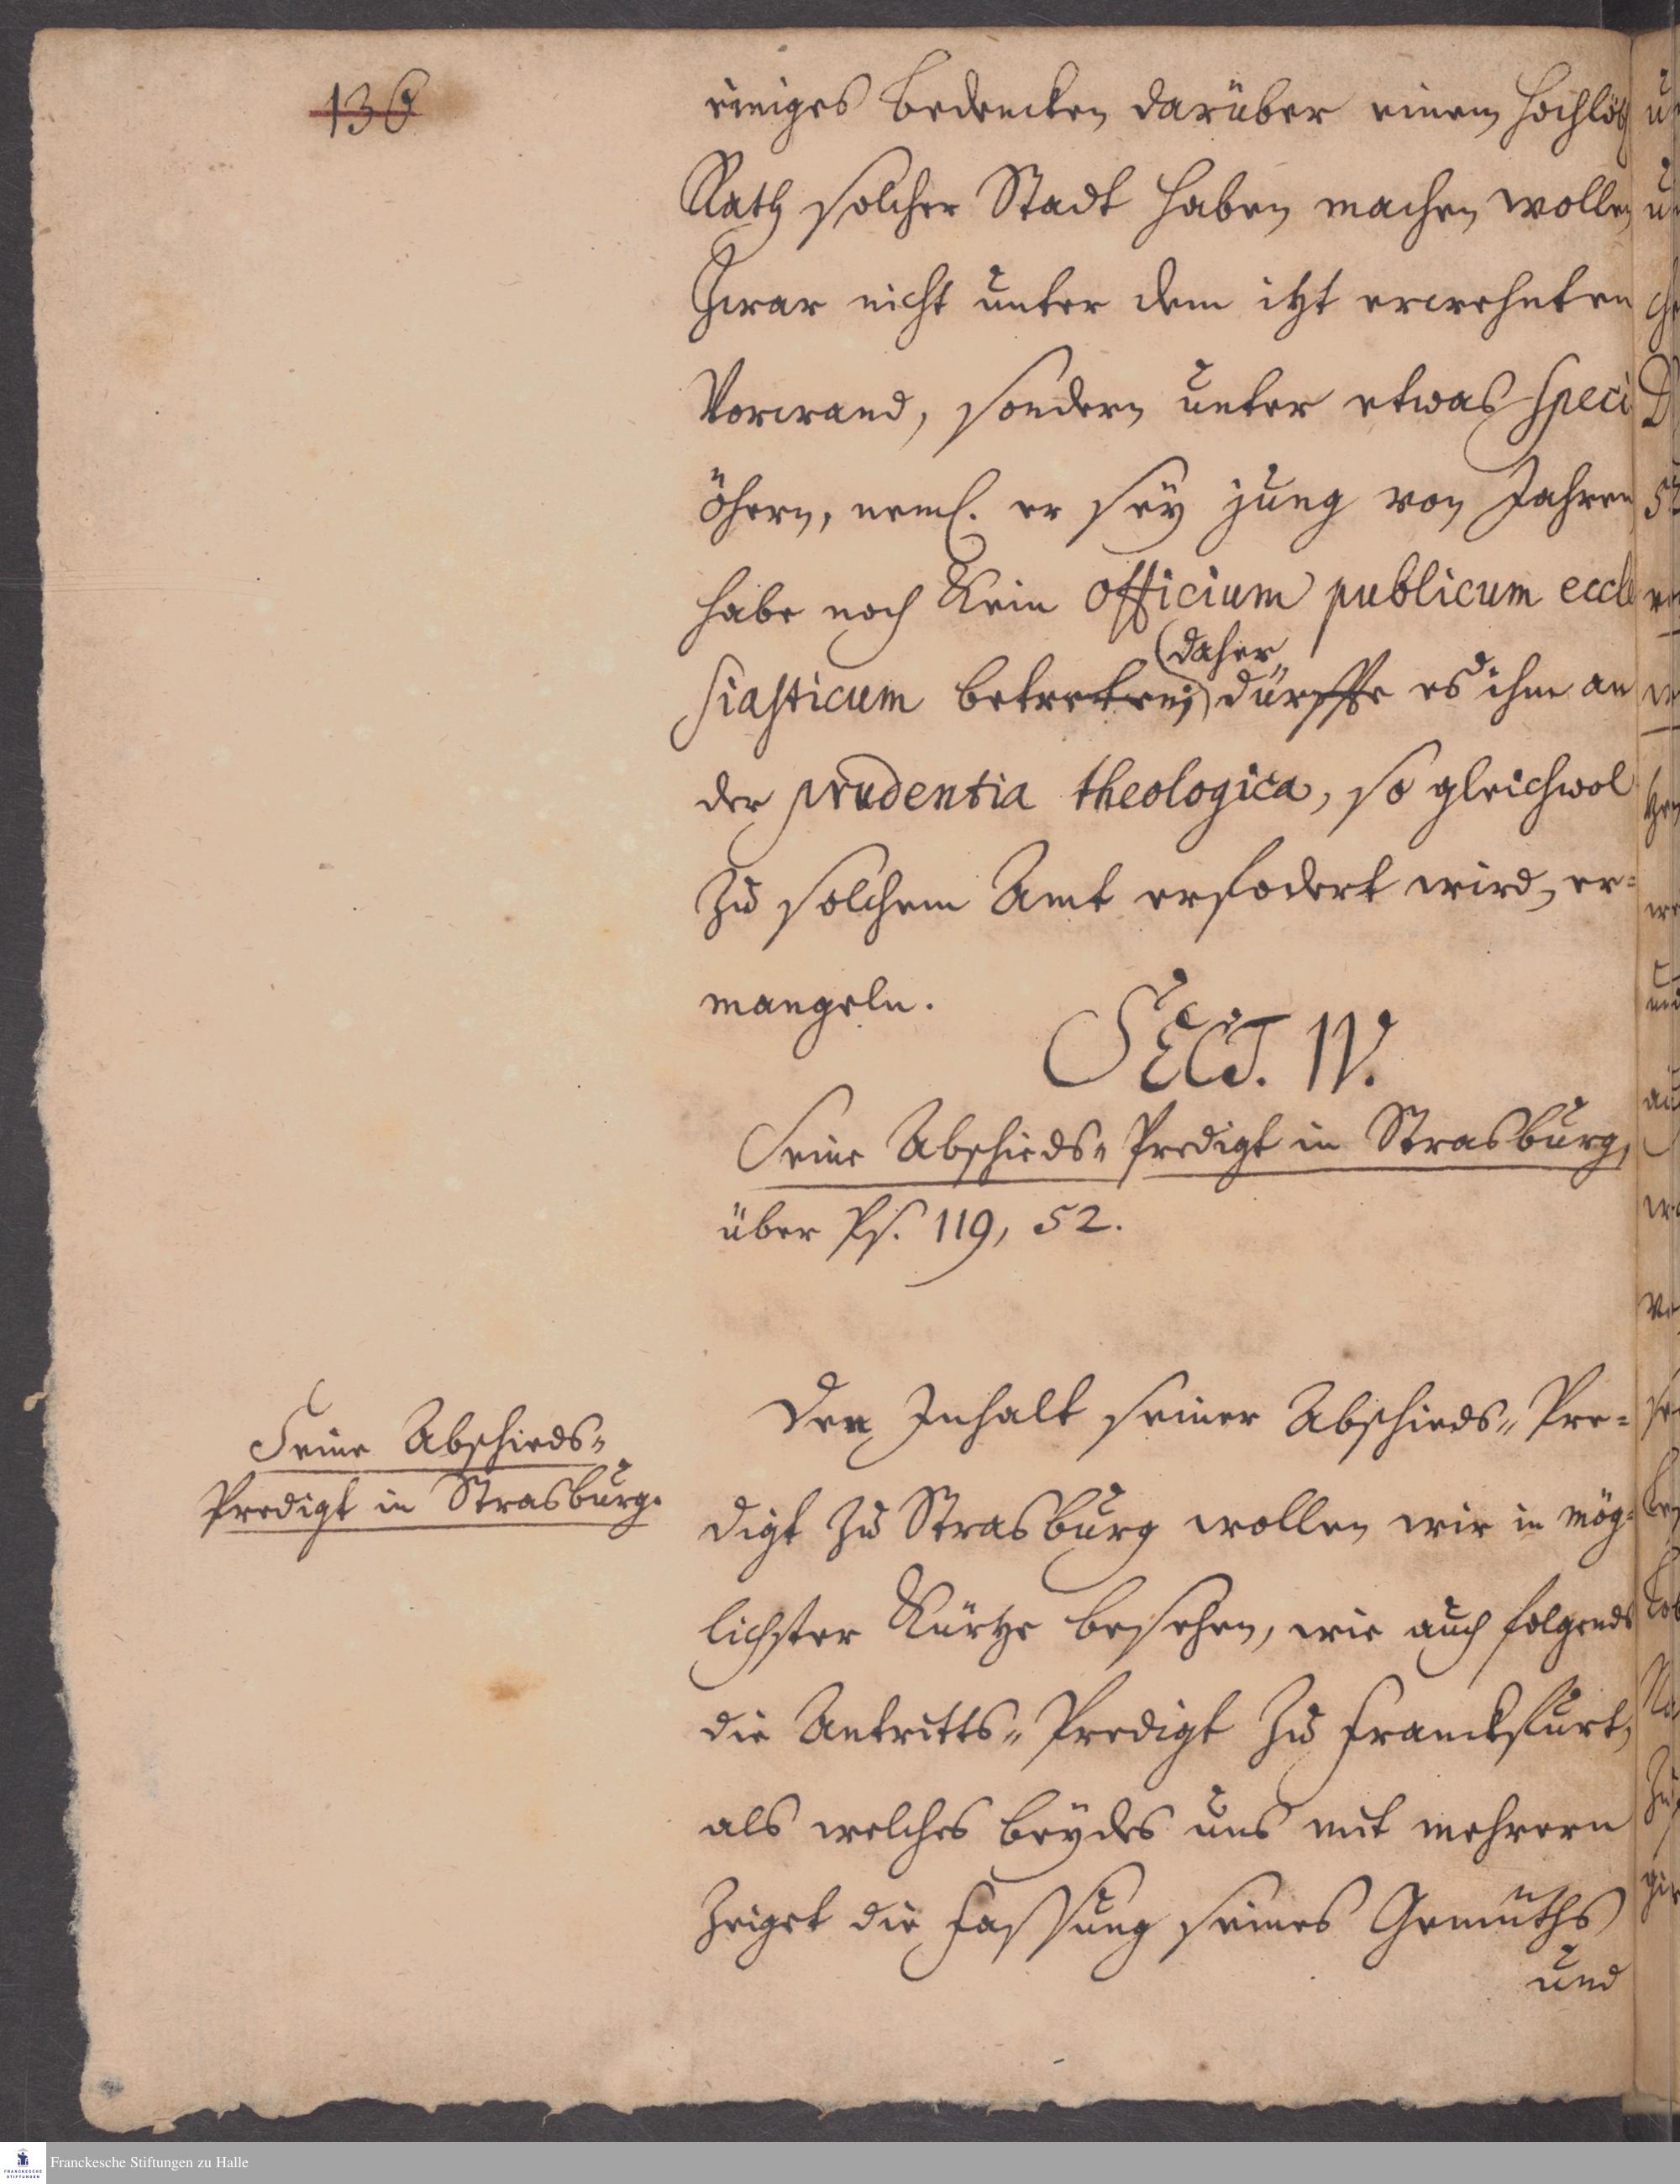 136
einiges Bedencken darüber einem Hochlöb
Rath solcher Stadt haben machen wollen
Zwar nicht unter dem itzt erwehnten
Vorwand, sondern unter etwas speci
öhern, neml. er seÿ jung von Jahren
habe noch kein officium publicum eccle
siasticum betreten; (daher) dürffte es ihm an
der prudentia theologica, so gleichwol
zu solchem Amt erfodert wird, er=
mangeln.
SECT. IV.
Seine Abschieds= Predigt in Strasburg,
über Ps. 119, 52.
Seine Abschieds=
Predigt in Strasburg.
Den Inhalt seiner Abschieds= Pre=
digt zu Strasburg wollen wir in mög=
lichster Kürtze besehen, wie auch folgends
die Antritts= Predigt zu Franckfurt,
als welches beÿdes uns mit mehrern
zeiget die Fassung seines Gemüths
und
Franckesche Stiftungen zu Halle